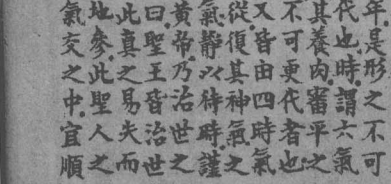 年是形之不可
代也時謂六氣
其養肉審平之
不可更代者也
又皆由四時氣
從復其神氣之
氣靜以待時謹
黃帝乃治世之
曰聖王皆治世
此真之易失而
地參此聖人之
氣交之中宜順